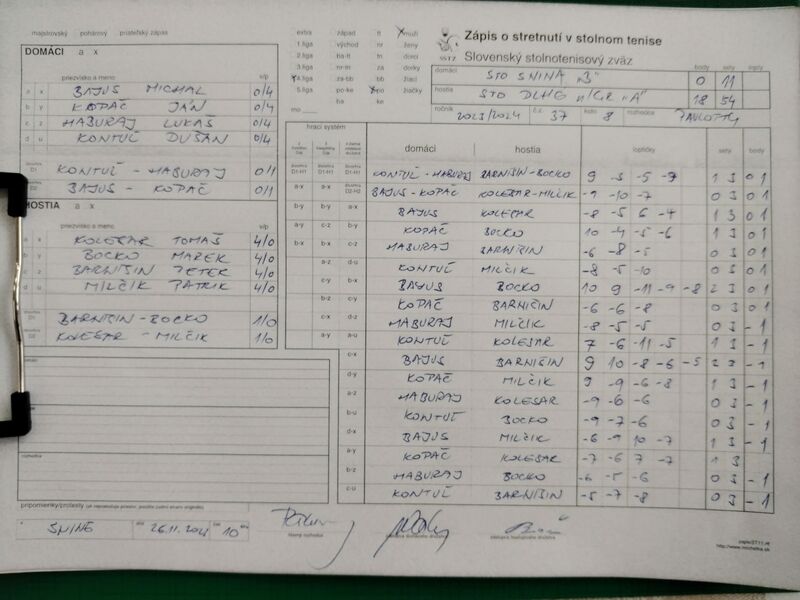 majstrovský pohárový priateľský zápas
DOMÁCI a x
priezvisko a meno v/p
a x BAJUS MICHAL 0/4
b y KOPAČ JÁN 0/4
c z HABURAJ LUKÁŠ 0/4
d u KONTUĽ DUŠAN 0/4
D1 KONTUĽ - HABURAJ 0/1
D2 BAJUS - KOPAČ 0/1
HOSTIA a x
priezvisko a meno v/p
a x KOLESAR TOMÁŠ 4/0
b y BOCKO MAREK 4/0
c z BARNIŠIN PETER 4/0
d u MILČIK PATRIK 4/0
D1 BARNIŠIN - BOCKO 1/0
D2 KOLESAR - MILČIK 1/0
pripomienky/protesty
SNINE 26.11. 10
extra západ ft muži
1.liga východ nr ženy
2.liga ba-tt tn dorci
3.liga nr-m za dorky
4.liga za-bb bb žiaci
5.liga ba-ke po žiačky
po-ke ke
mo
Zápis o stretnutí v stolnom tenise
SSTZ Slovenský stolnotenisový zväz
body sety lopty
domáci STO SNINA "B" 0 11
hostia STO DLHÉ n/CIR "A" 18 54
ročník 2023/2024 č.z. 37 kolo 8 rozhodca
hrací systém domáci hostia loptičky sety body
KONTUĽ - HABURAJ BARNIŠIN - BOCKO 9 -3 -5 -9 1 3 0 1
a-x a-x BAJUS - KOPAČ KOLESAR - MILČIK -9 -10 -7 0 3 0 1
b-y b-y a-y BAJUS KOLESAR -8 -5 6 -4 1 3 0 1
a-y c-z b-x KOPAČ BOCKO 10 -4 -5 -6 1 3 0 1
b-x b-x c-z HABURAJ BARNIŠIN -6 -8 -5 0 3 0 1
a-z d-u KONTUĽ MILČIK -8 -5 -10 0 3 0 1
c-y b-x BAJUS BOCKO 10 9 -11 -9 -8 2 3 0 1
b-z c-y KOPAČ BARNIŠIN -6 -6 -8 0 3 0 1
c-x d-z HABURAJ MILČIK -8 -5 -5 0 3 - 1
a-y a-u KONTUĽ KOLESAR 7 -6 -11 -5 1 3 - 1
c-x BAJUS BARNIŠIN 9 10 -8 -6 -5 2 3 - 1
d-y KOPAČ MILČIK 9 -9 -6 -8 1 3 - 1
a-z HABURAJ KOLESAR -9 -6 -6 0 3 - 1
b-u KONTUĽ BOCKO -9 -7 -6 0 3 - 1
d-x BAJUS MILČIK -6 -9 10 -7 1 3 - 1
a-y KOPAČ KOLESAR -7 -6 7 -7 1 3
b-z HABURAJ BOCKO -6 -5 -6 0 3 - 1
c-u KONTUĽ BARNIŠIN -5 -7 -8 0 3 - 1
http://www.michalka.sk